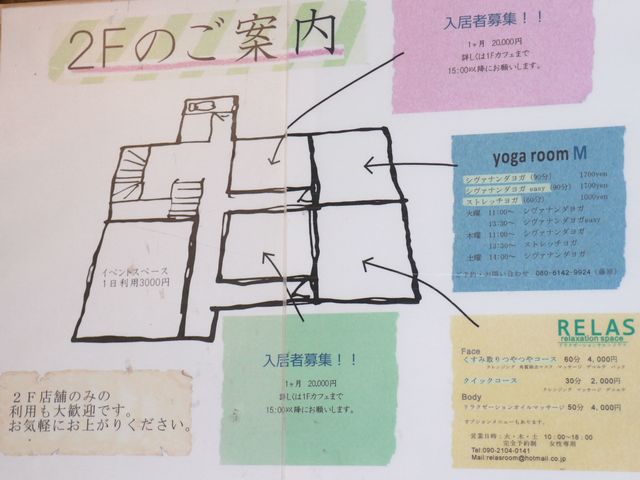 2Fのご案内
入居者募集！！
1ヶ月 20,000円
詳しくは1Fカフェまで
15:00以降にお願いします。
yoga room M
シヴァナンダヨガ (90分) 1700yen
シヴァナンダヨガ easy (90分) 1700yen
ストレッチヨガ (60分) 1000yen
火曜 11:00～ シヴァナンダヨガ
13:30～ シヴァナンダヨガeasy
木曜 11:00～ シヴァナンダヨガ
13:30～ ストレッチヨガ
土曜 14:00～ シヴァナンダヨガ
ご予約・お問い合わせ 080-6142-9924 (藤原)
イベントスペース
1日利用3000円
RELAS
relaxation space
リラクゼーションサロンリラス
Face
くすみ取りつやつやコース 60分 4,000円
クレンジング 角質除去マスク マッサージ デコルテ パック
クイックコース 30分 2,000円
クレンジング マッサージ デコルテ
Body
リラクゼーションオイルマッサージ 50分 4,000円
オプションメニューもあります。
営業日時：火・木・土 10：00～18：00
完全予約制 女性専用
Tel:090-2104-0141
Mail:relasroom@hotmail.co.jp
入居者募集！！
1ヶ月 20,000円
詳しくは1Fカフェまで
15:00以降にお願いします。
２Ｆ店舗のみの
利用も大歓迎です。
お気軽にお上がりください。